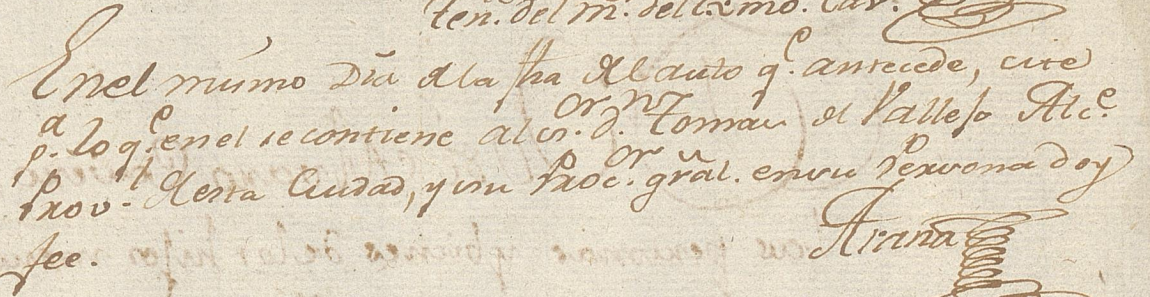 ten.^e del m.^o del Exmo. Cav.
En el mismo Dia de la fha del auto q.^e antecede, cite
p.^a lo q.^e en el se contiene al s.^or D.^n Tomas de Vallejo Alc.^e
Prov.^l de esta Ciudad, y su Proc.^or gral. en su Persona doy
fee.
Arana